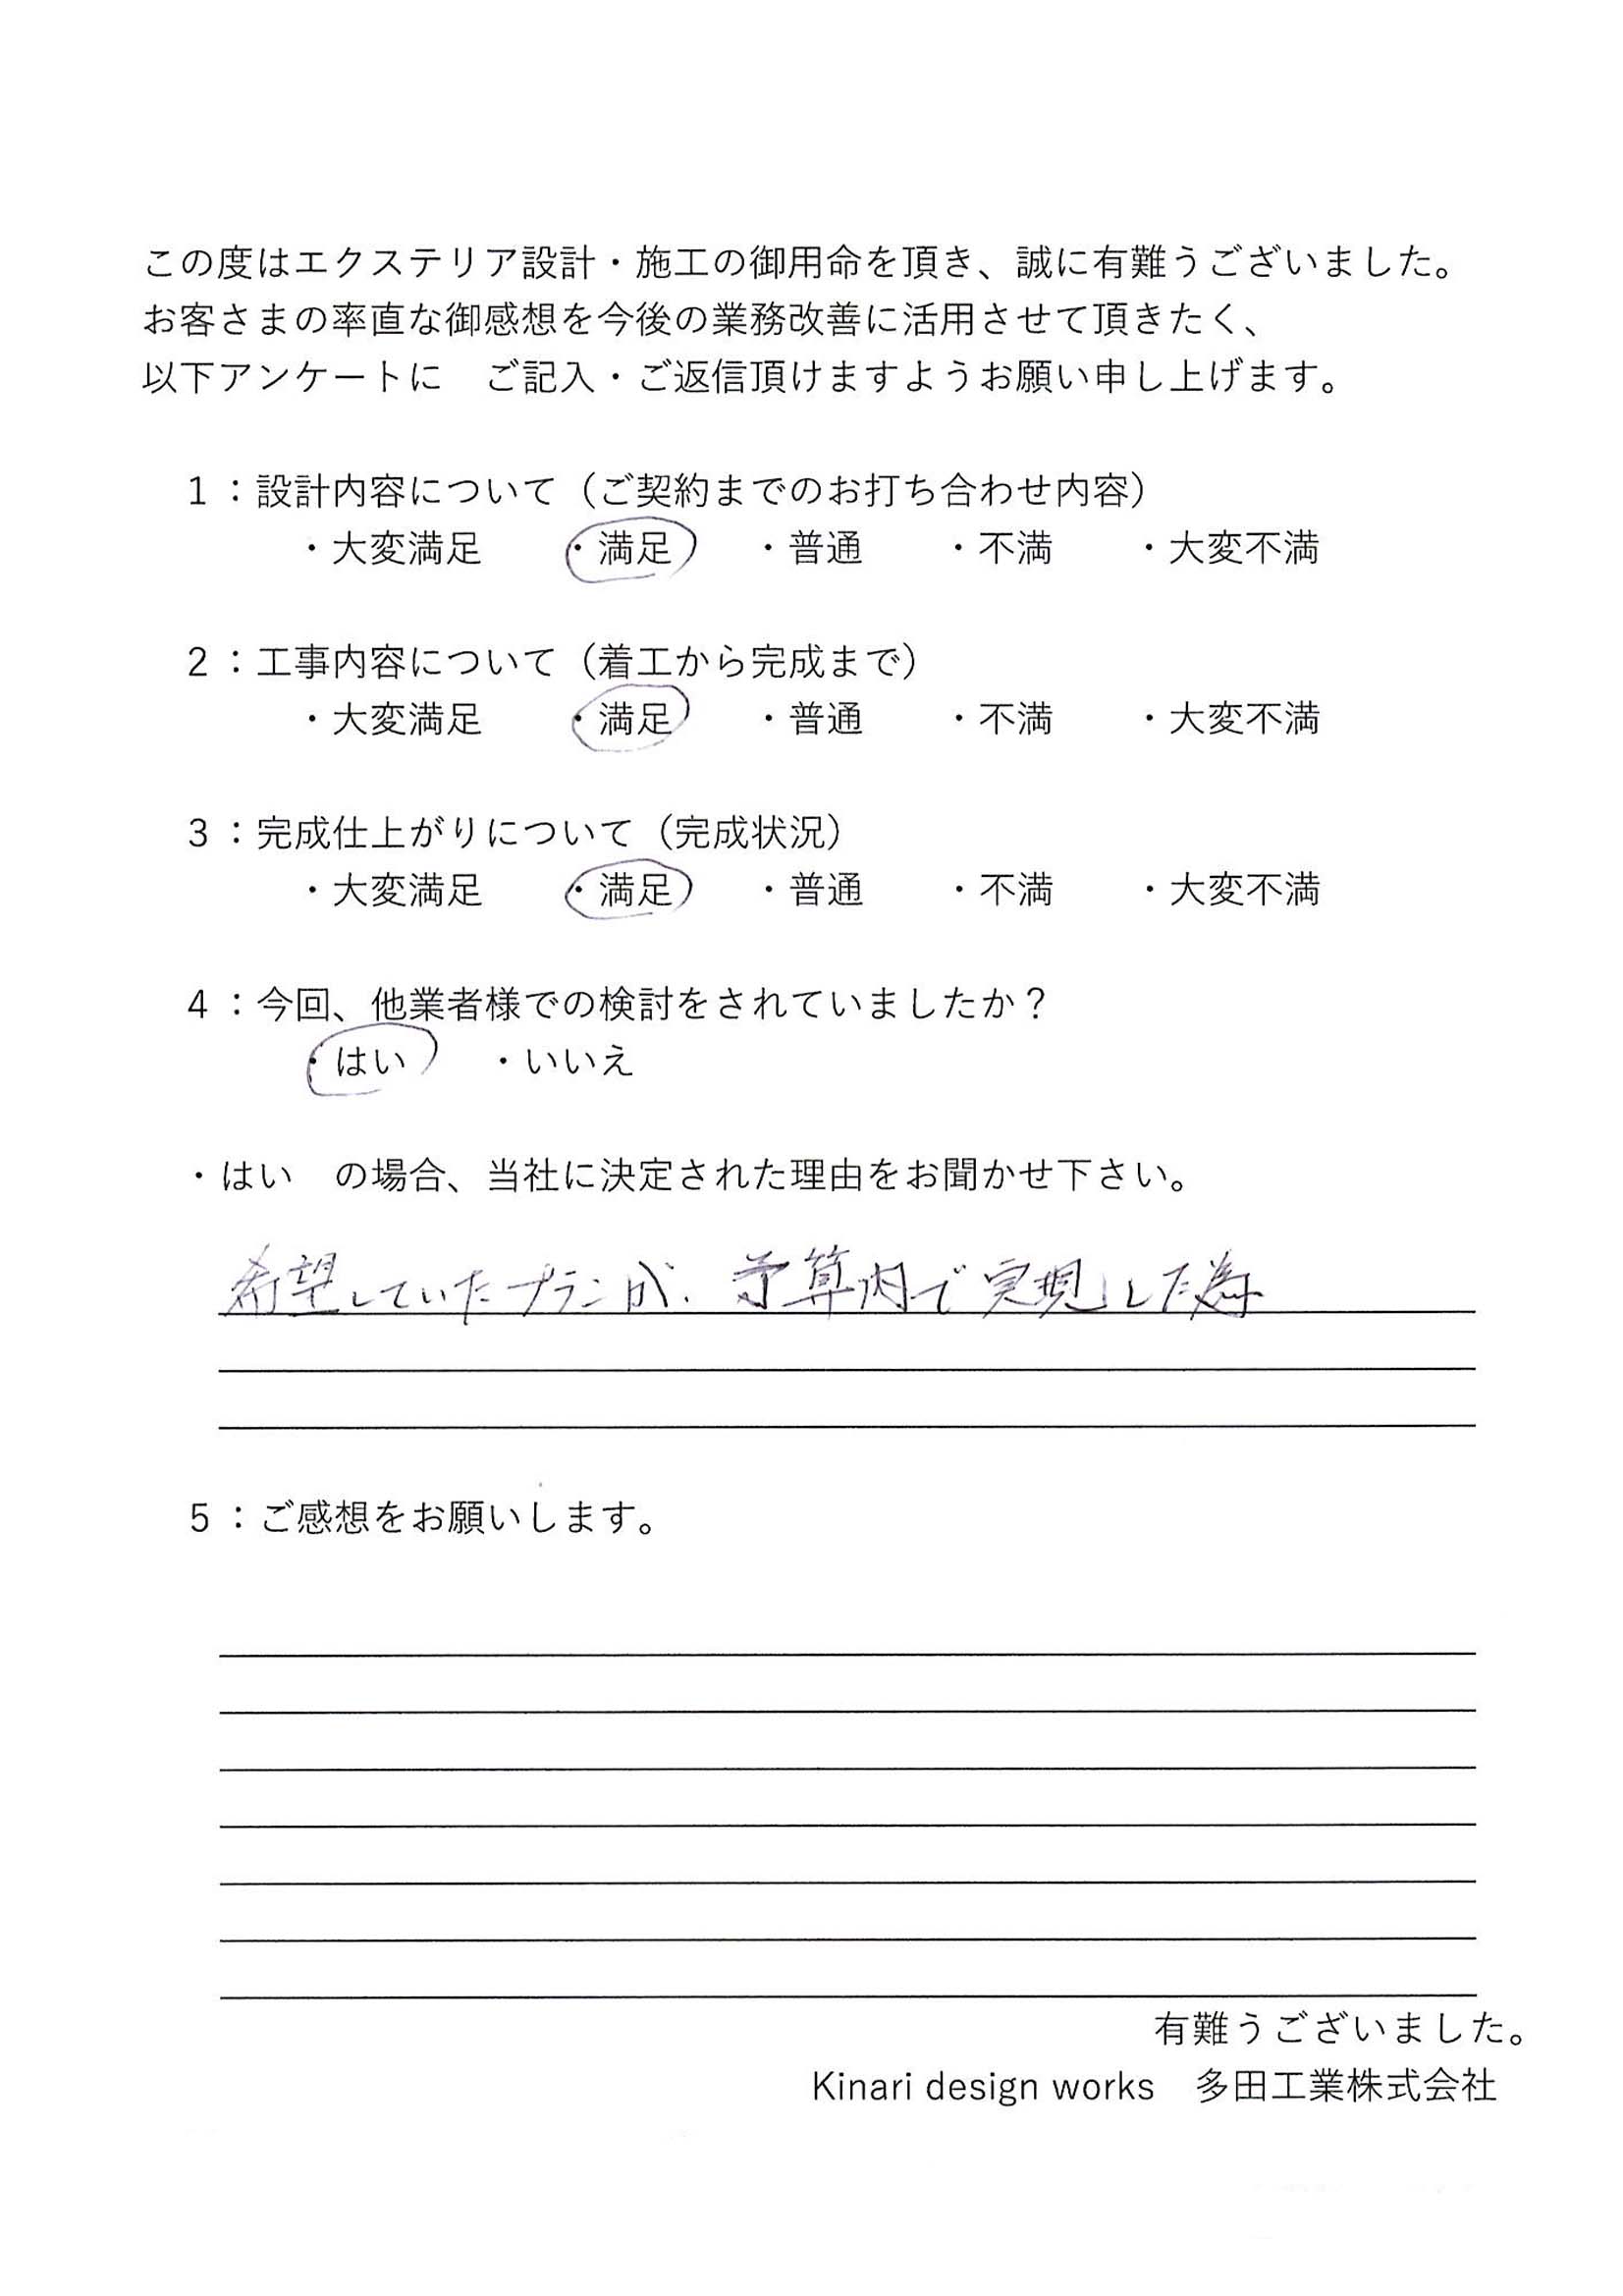 この度はエクステリア設計・施工の御用命を頂き、誠に有難うございました。
お客さまの率直な御感想を今後の業務改善に活用させて頂きたく、
以下アンケートに　ご記入・ご返信頂けますようお願い申し上げます。
1：設計内容について（ご契約までのお打ち合わせ内容）
・大変満足　・満足　・普通　・不満　・大変不満
2：工事内容について（着工から完成まで）
・大変満足　・満足　・普通　・不満　・大変不満
3：完成仕上がりについて（完成状況）
・大変満足　・満足　・普通　・不満　・大変不満
4：今回、他業者様での検討をされていましたか？
・はい　・いいえ
・はい　の場合、当社に決定された理由をお聞かせ下さい。
希望していたプランが、予算内で実現した為
5：ご感想をお願いします。
有難うございました。
Kinari design works　多田工業株式会社